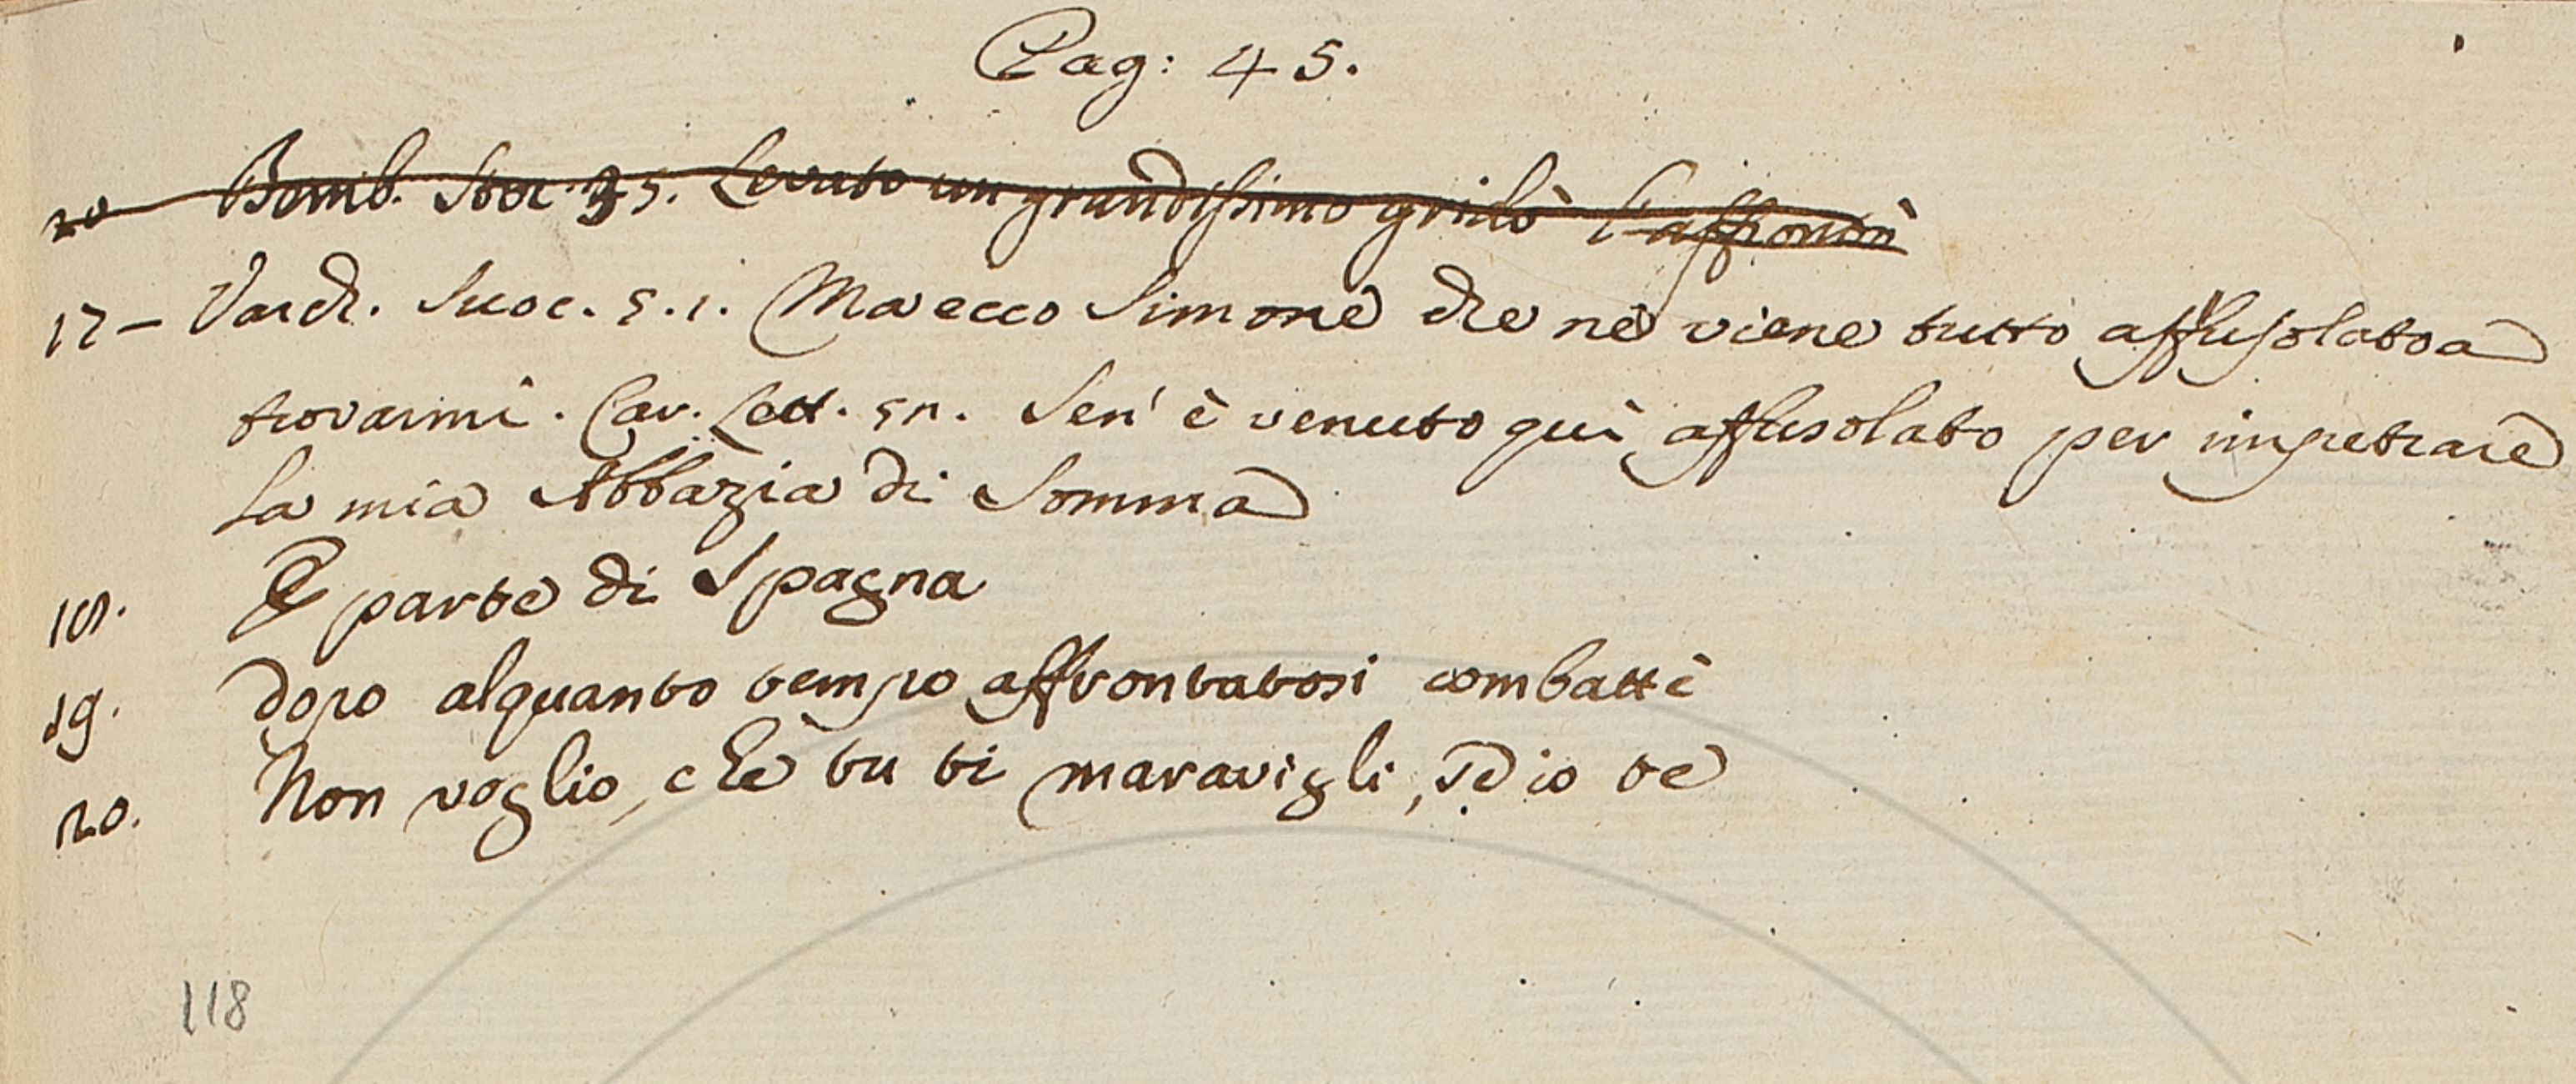 Pag: 45.
20 Bemb. Stor. 35. Levato un grandissimo grido l'affrontò
17 – Varch. Suoc. 5.1. Ma ecco Simone che ne viene tutto affusolato a
trovarmi. Car. Lett. 52. Sen' è venuto quì affusolato per impetrare
la mia Abbazia di Somma
18. E parte di Spagna
19. dopo alquanto tempo affrontatosi combattè
20. Non voglio, che tu ti maravigli, se io te
118